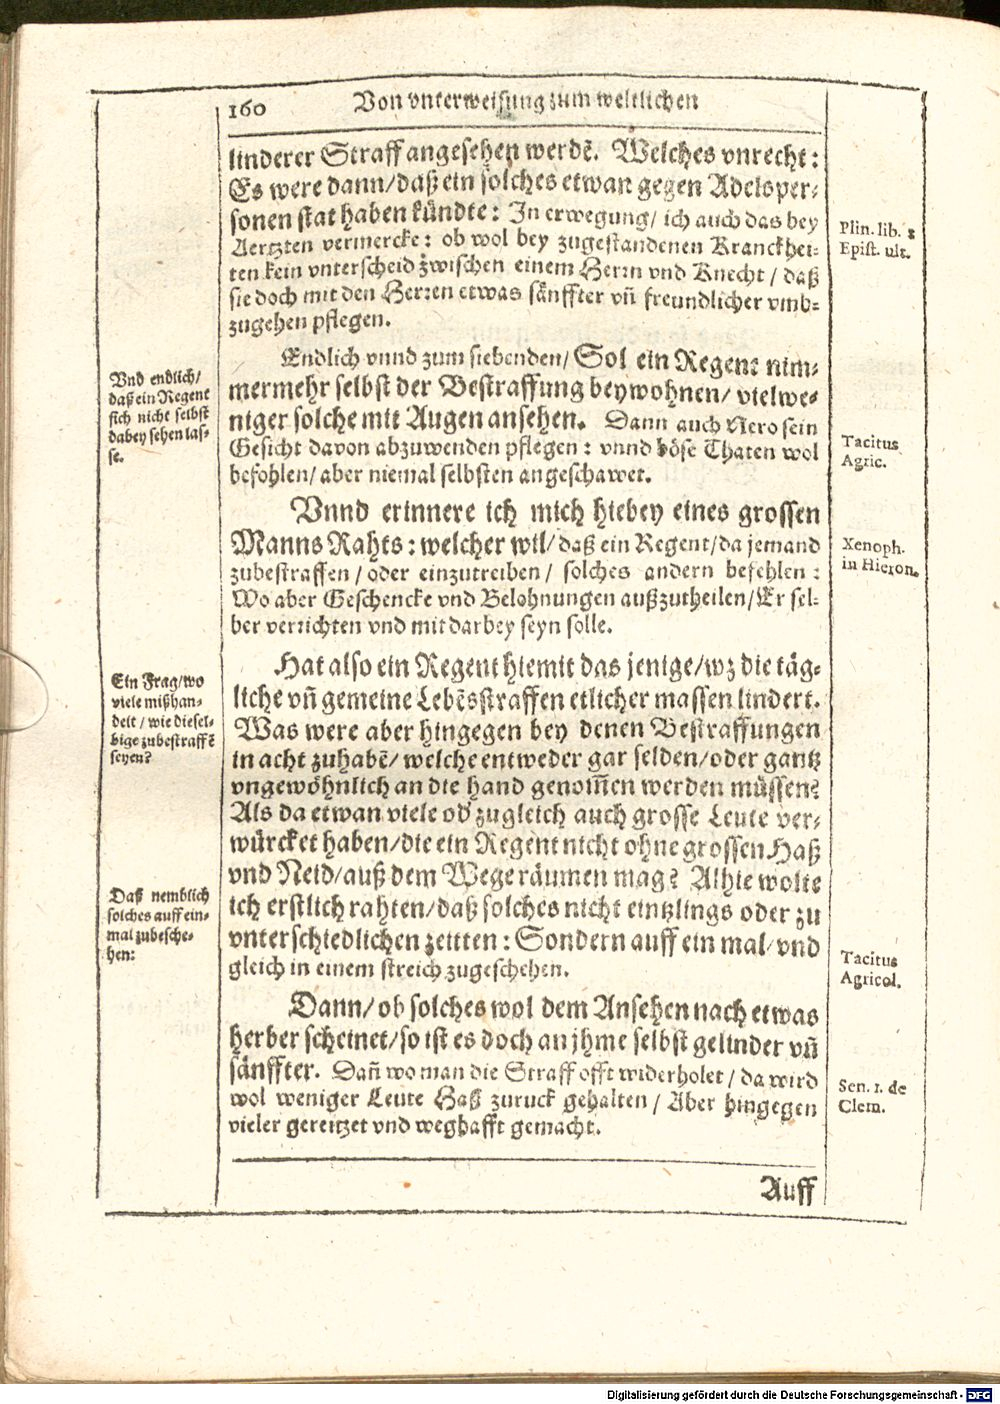 160 Von vnterweisung zum weltlichen
linderer Straff angesehen werdē. Welches vnrecht:
Es were dann/daß ein solches etwan gegen Adelsper-
sonen stat haben kündte: In erwegung/ ich auch das bey
Aertzten vermercke: ob wol bey zugestandenen Kranckhei-
ten kein vnterscheid zwischen einem Herrn vnd Knecht / daß
sie doch mit den Herren etwas sänffter vñ freundlicher vmb-
zugehen pflegen.
Plin. lib. 8
Epist. ult.
Endlich vnnd zum siebenden/ Sol ein Regent nim-
mermehr selbst der Bestraffung beywohnen/ vielwe-
niger solche mit Augen ansehen. Dann auch Nero sein
Gesicht davon abzuwenden pflegen: vnnd böse Thaten wol
befohlen/ aber niemal selbsten angeschawet.
Vnd endlich/
daß ein Regent
sich nicht selbst
dabey sehen las-
se.
Tacitus
Agric.
Vnnd erinnere ich mich hiebey eines grossen
Manns Rahts: welcher wil/daß ein Regent/da jemand
zubestraffen / oder einzutreiben / solches andern befehlen:
Wo aber Geschencke vnd Belohnungen außzutheilen/Er sel-
ber verrichten vnd mit darbey seyn solle.
Xenoph.
in Hieron.
Hat also ein Regent hiemit das jenige/wz die täg-
liche vñ gemeine Lebēsstraffen etlicher massen lindert.
Was were aber hingegen bey denen Bestraffungen
in acht zuhabē/ welche entweder gar selden/oder gantz
vngewöhnlich an die hand genom̄en werden müssen?
Als da etwan viele od' zugleich auch grosse Leute ver-
würcket haben/die ein Regent nicht ohne grossen Haß
vnd Neid/auß dem Wege räumen mag? Alhie wolte
ich erstlich rahten/daß solches nicht eintzlings oder zu
vnterschiedlichen zeitten: Sondern auff ein mal/vnd
gleich in einem streich zugeschehen.
Ein Frag/wo
viele mißhan-
delt / wie diesel-
bige zubestraffē
seyen?
Daß nemblich
solches auff ein-
mal zubesche-
hen:
Tacitus
Agricol.
Dann/ ob solches wol dem Ansehen nach etwas
herber scheinet/so ist es doch an jhme selbst gelinder vñ
sänffter. Dañ wo man die Straff offt widerholet / da wird
wol weniger Leute Haß zuruck gehalten / Aber hingegen
vieler gereitzet vnd weghafft gemacht.
Sen. 1. de
Clem.
Auff
Digitalisierung gefördert durch die Deutsche Forschungsgemeinschaft - DFG